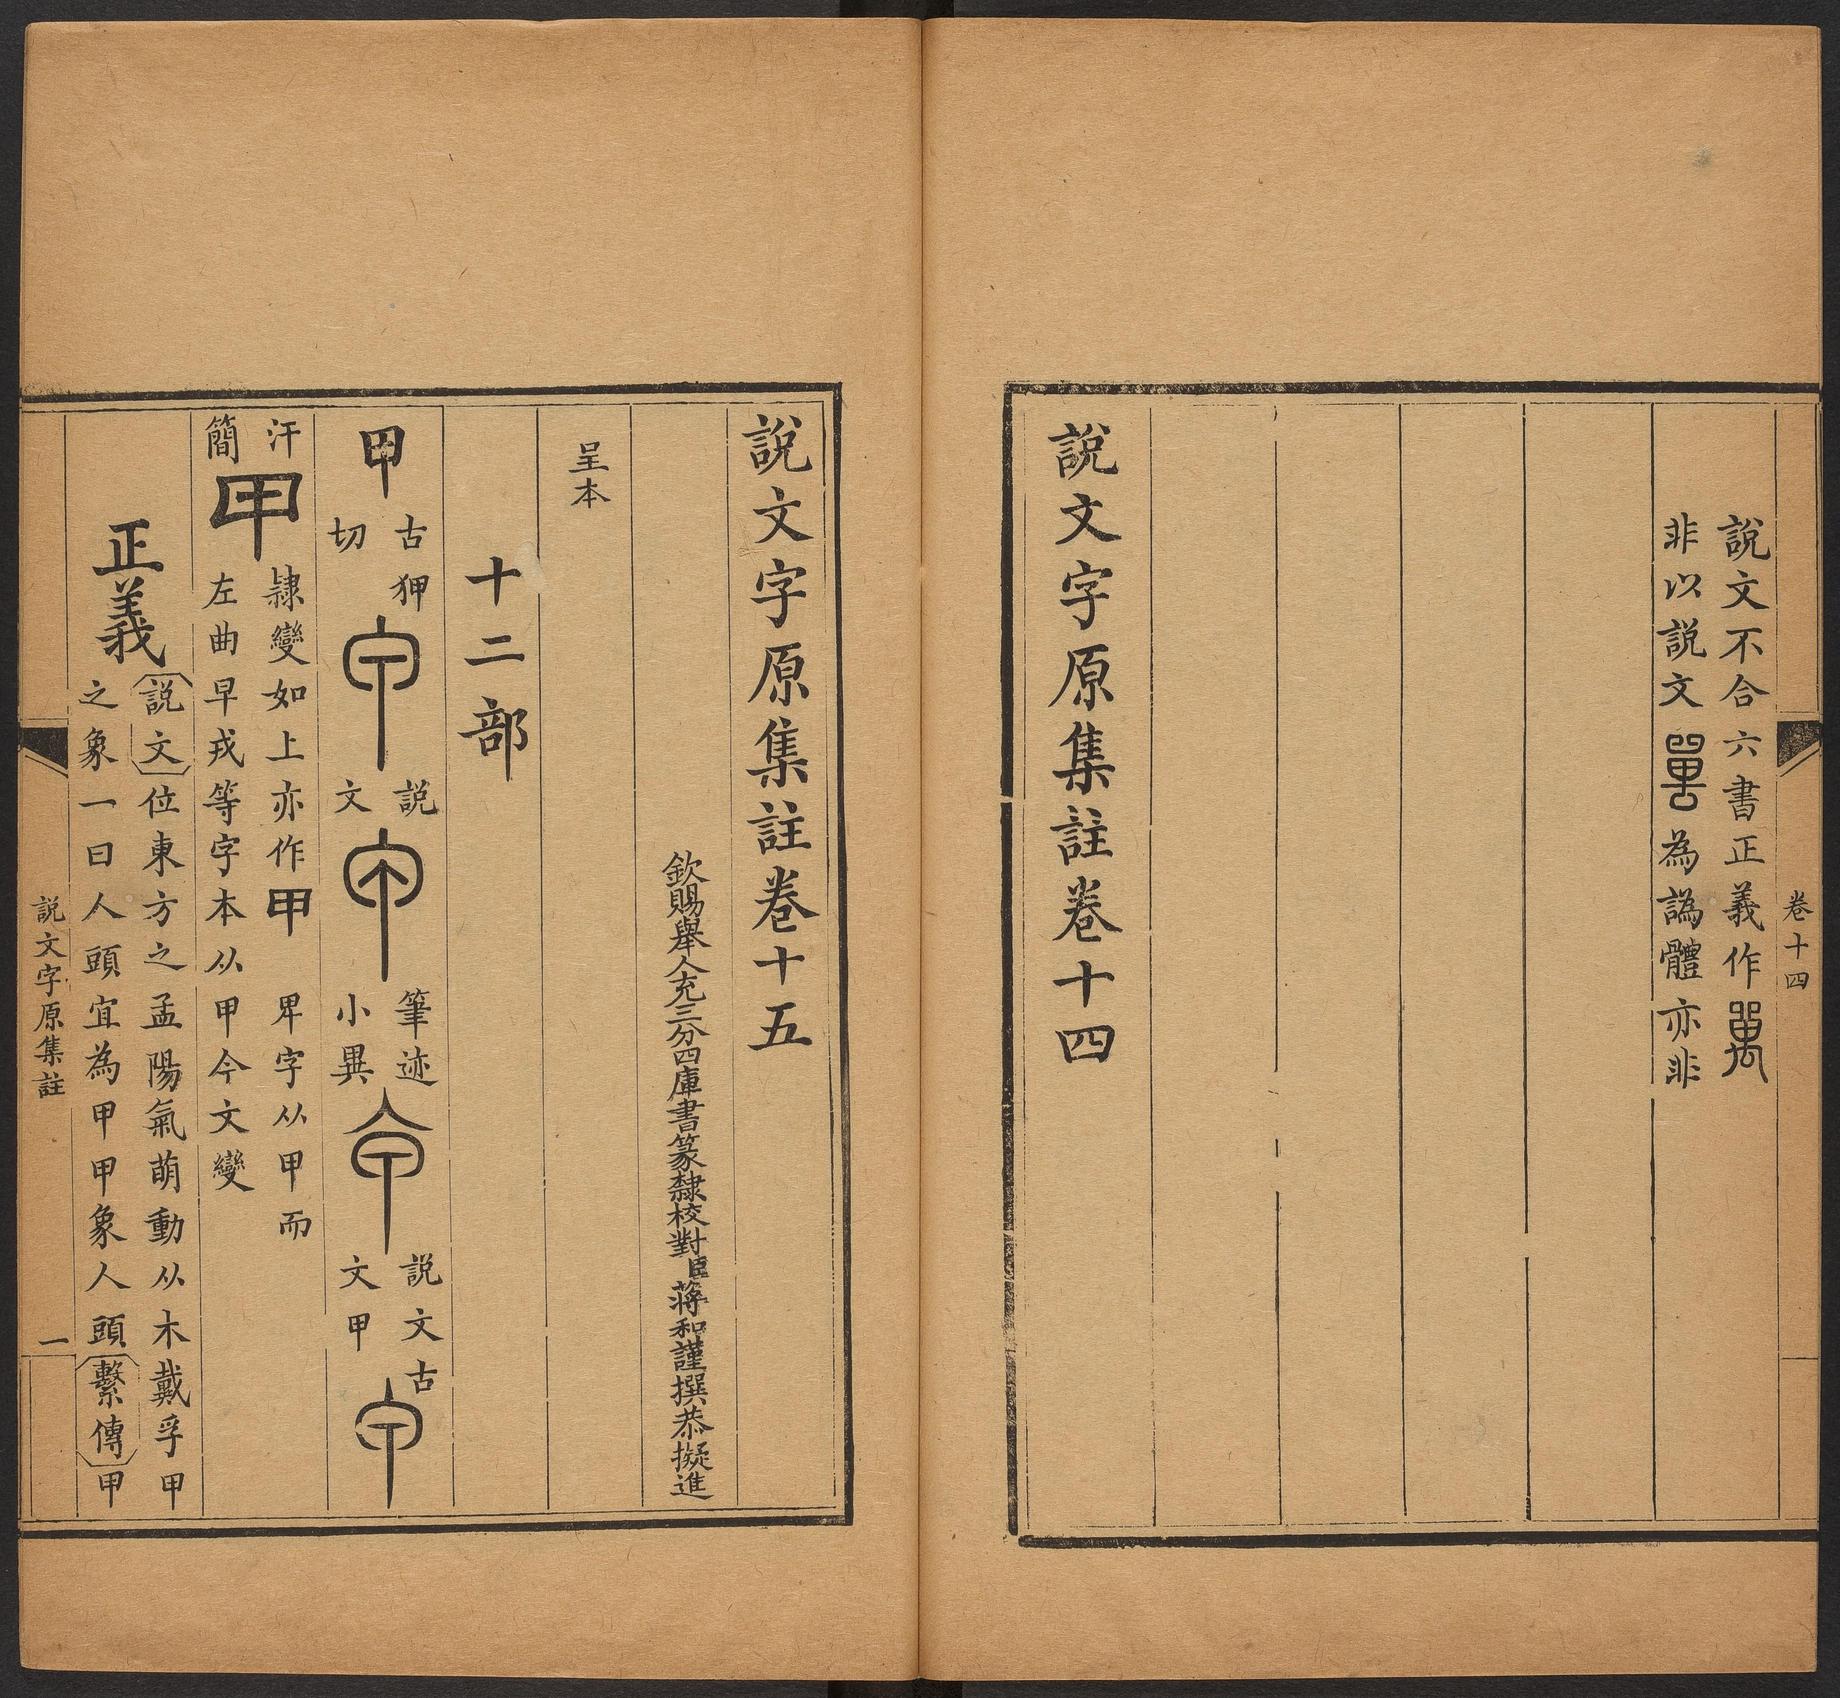 說文不合六書正義作萬
非以説文萬為譌體亦非
說文字原集註卷十四
卷十四
說文字原集註卷十五
欽賜舉人充三分四庫書篆隸校對臣蔣和謹撰恭擬進
呈本
十二部
甲
古狎
切
甲
説
文
甲
筆迹
小異
甲
説文古
文甲
甲
汗
簡
甲
隷變如上亦作甲 𤰞字从甲而
左曲早戎等字本从甲今文變
正義
説文位東方之孟陽氣萌動从木戴孚甲
之象一曰人頭宜為甲甲象人頭繫傳甲
説文字原集註
一